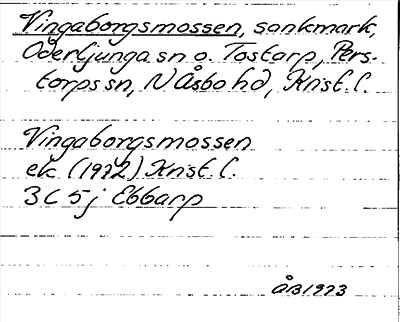 Vingaborgsmossen, sankmark,
Oderljunga sn o. Tostarp, Pers-
torps sn, N Åsbo hd, Krist. l.
Vingaborgsmossen
ek (1972) Krist l.
3C 5j Ebbarp
ÅB 1973